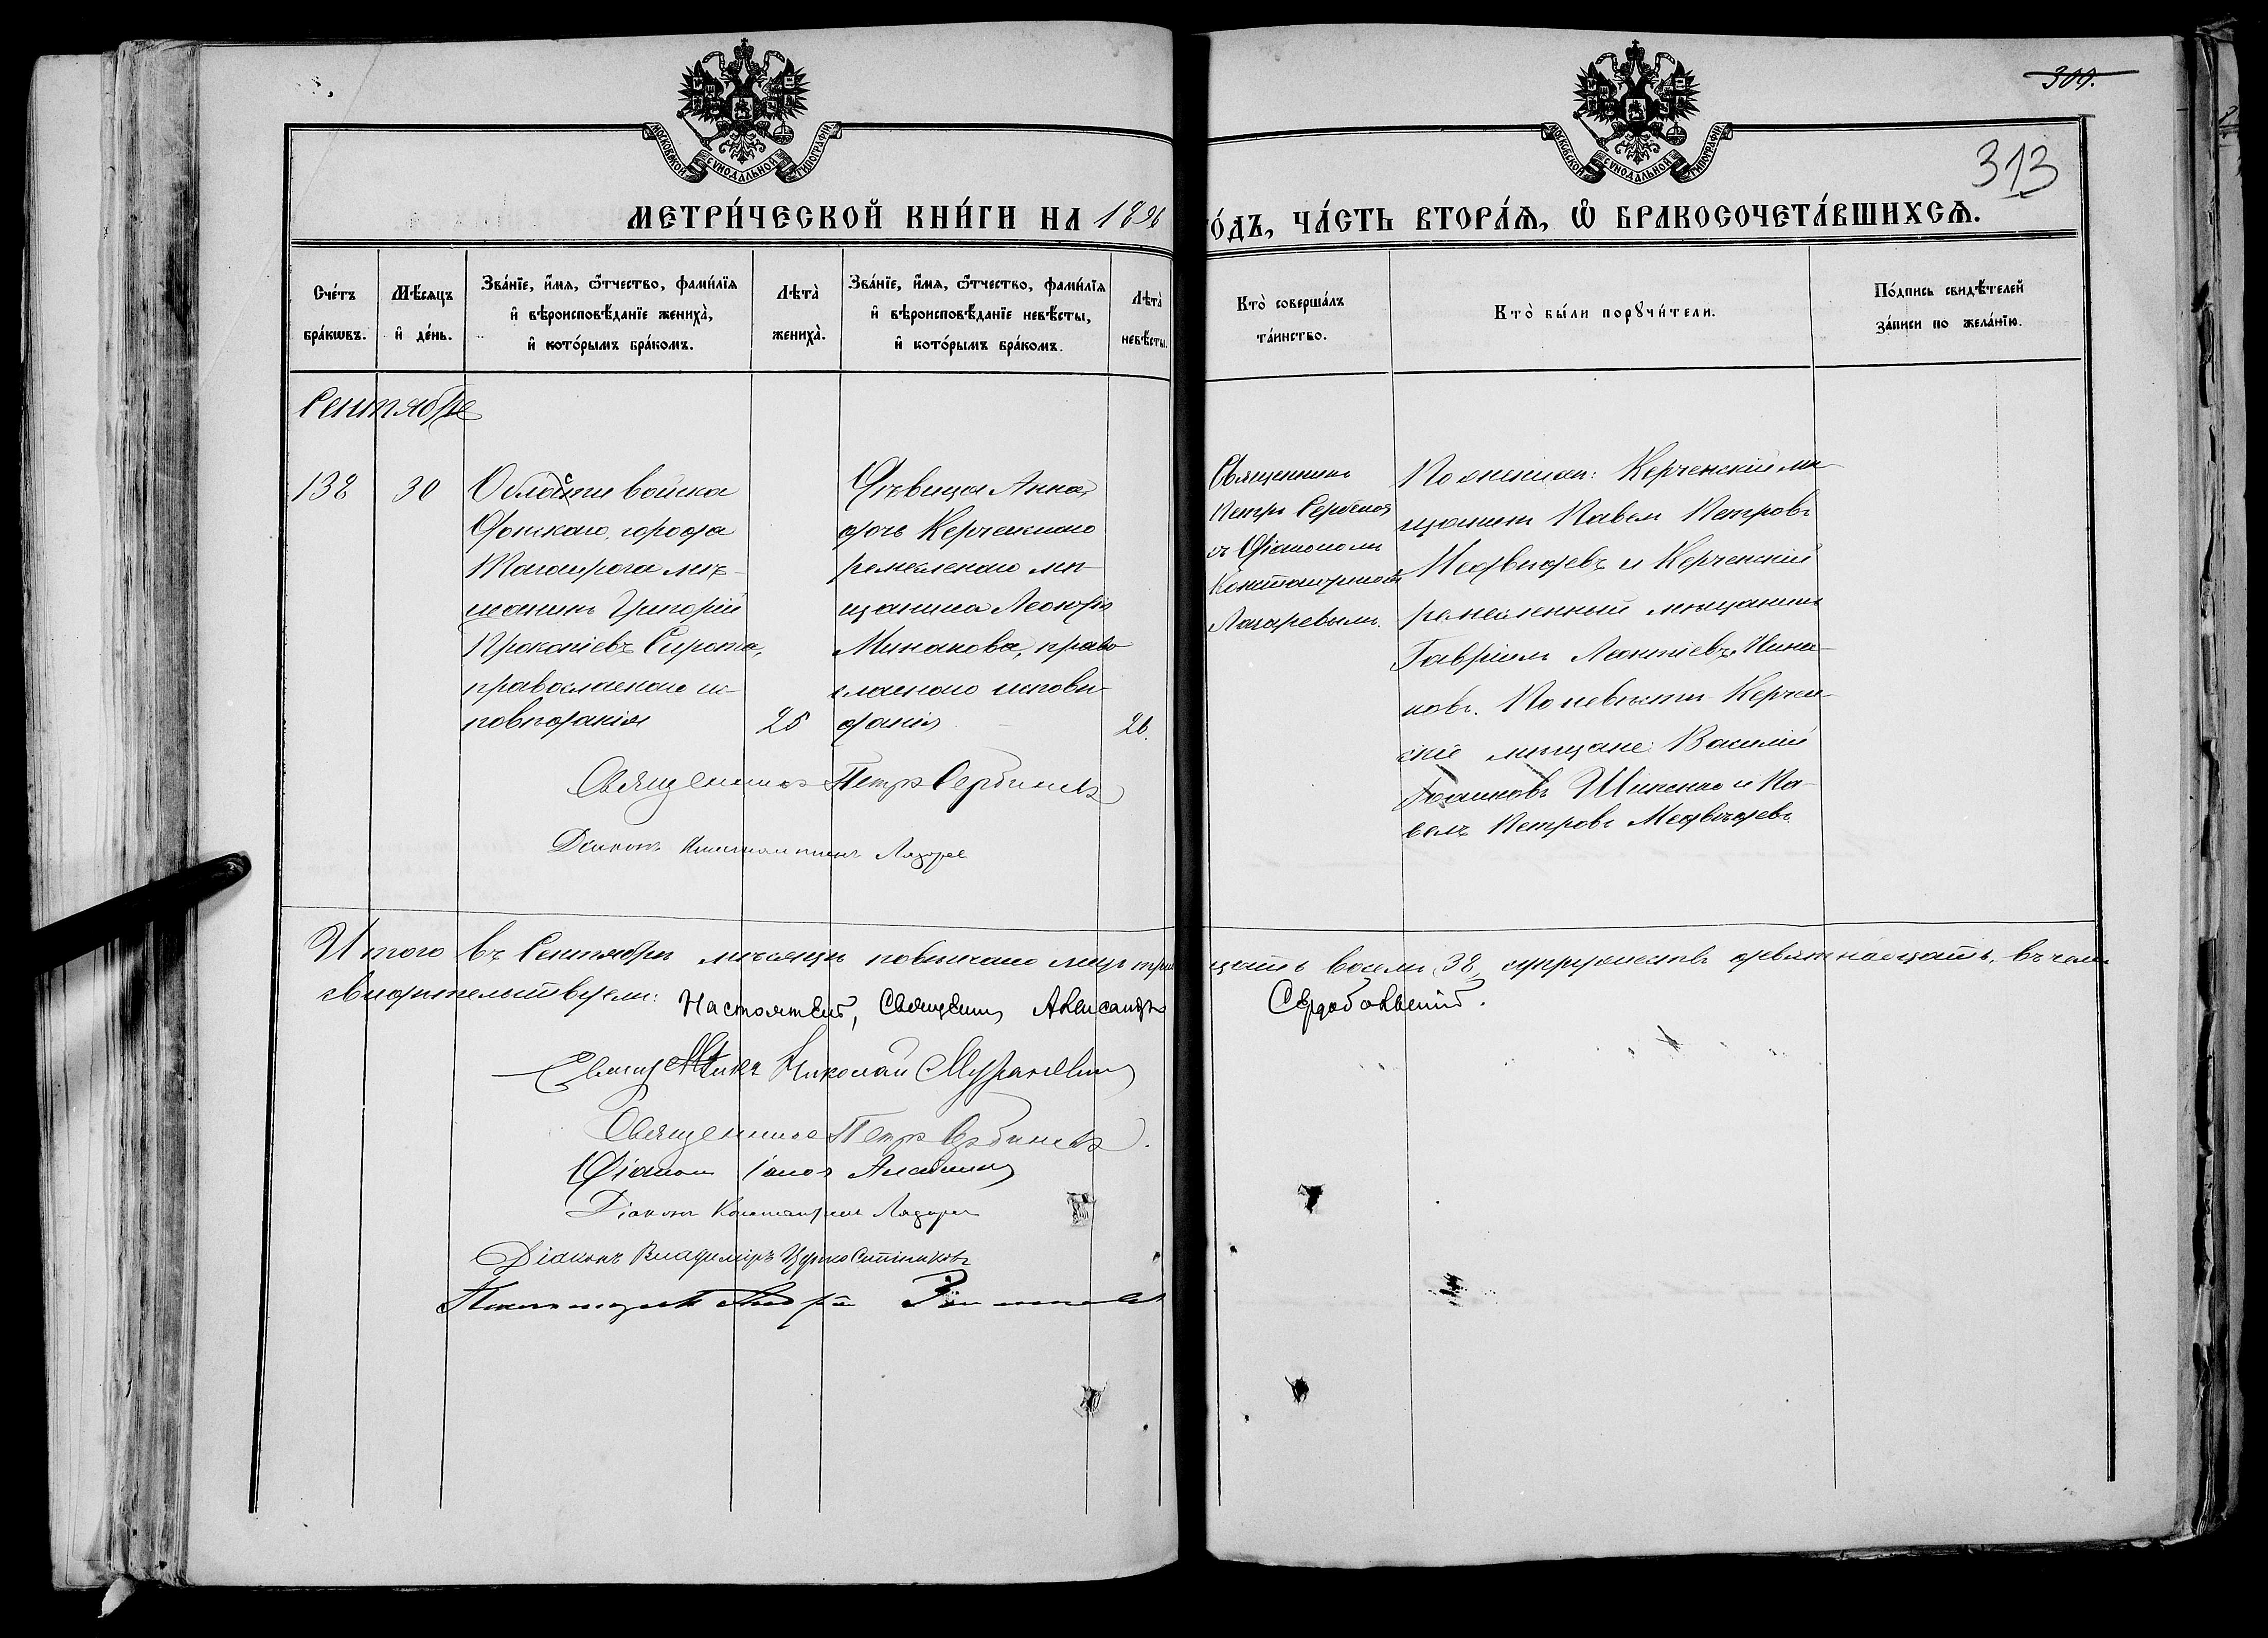 309.
313
МОСКОВСКОЙ СѴНОДАЛЬНОЙ ТИПОГРАФІИ
МОСКОВСКОЙ СѴНОДАЛЬНОЙ ТИПОГРАФІИ
МЕТРИ́ЧЕСКОЙ КНИ́ГИ НА 1896 ГО́ДЪ, ЧА́СТЬ ВТОРА́Ѧ, Ѽ БРАКОСОЧЕТА́ВШИХСѦ.
Сче́тъ бра́кѡвъ.
Мѣ́сяцъ и҆ де́нь.
Зва́нїе, и҆́мѧ, ѻ҆́тчество, фами́лїѧ и҆ вѣроисповѣ́данїе жениха̀, и҆ кото́рымъ бра́комъ.
Лѣта̀ жениха̀.
Зва́нїе, и҆́мѧ, ѻ҆́тчество, фами́лїѧ и҆ вѣроисповѣ́данїе невѣ́сты, и҆ кото́рымъ бра́комъ.
Лѣта̀ невѣ́сты.
Кто̀ соверша́лъ та́инство.
Кто̀ бы́ли порꙋчи́тели.
По́дпись свидѣ́телей за́писи по жела́нїю.
Сентябрь
138
30
Области войска
Донскаго, города
Таганрога мѣ-
щанинъ Григорій
Прокопіевъ Сирота,
православнаго ис-
повѣданія
25
Дѣвица Анна,
дочь Керченскаго
ремесленаго мѣ-
щанина Леонтія
Минакова, право
славнаго исповѣ-
данія
26.
Священникъ
Петръ Сербиновъ
съ Діакономъ
Константиномъ
Лазаревымъ.
По женихѣ: Керченскій мѣ-
щанинъ Павелъ Петровъ
Медвѣдевъ и Керченскій
ремесленный мѣщанинъ
Гавріилъ Леонтіевъ Мина-
ковъ. По невѣстѣ Керчен-
скіе мѣщане: Василій
Шиленко и Па-
велъ Петровъ Медвѣдевъ
Священникъ Петръ Сербиновъ
Діаконъ Константинъ Лазарев
Итого въ Сентябрѣ мѣсяцѣ повѣнчано лицъ тридцать восемь, 38, супружествъ девятнадцать, въ чемъ
свидѣтельствуемъ: Настоятель, Священник Александръ Сердобольскій.
Священникъ Николай
Священникъ Петръ Сербиновъ.
Діаконъ
Діаконъ Константинъ Лазарев
Діаконъ Владиміръ